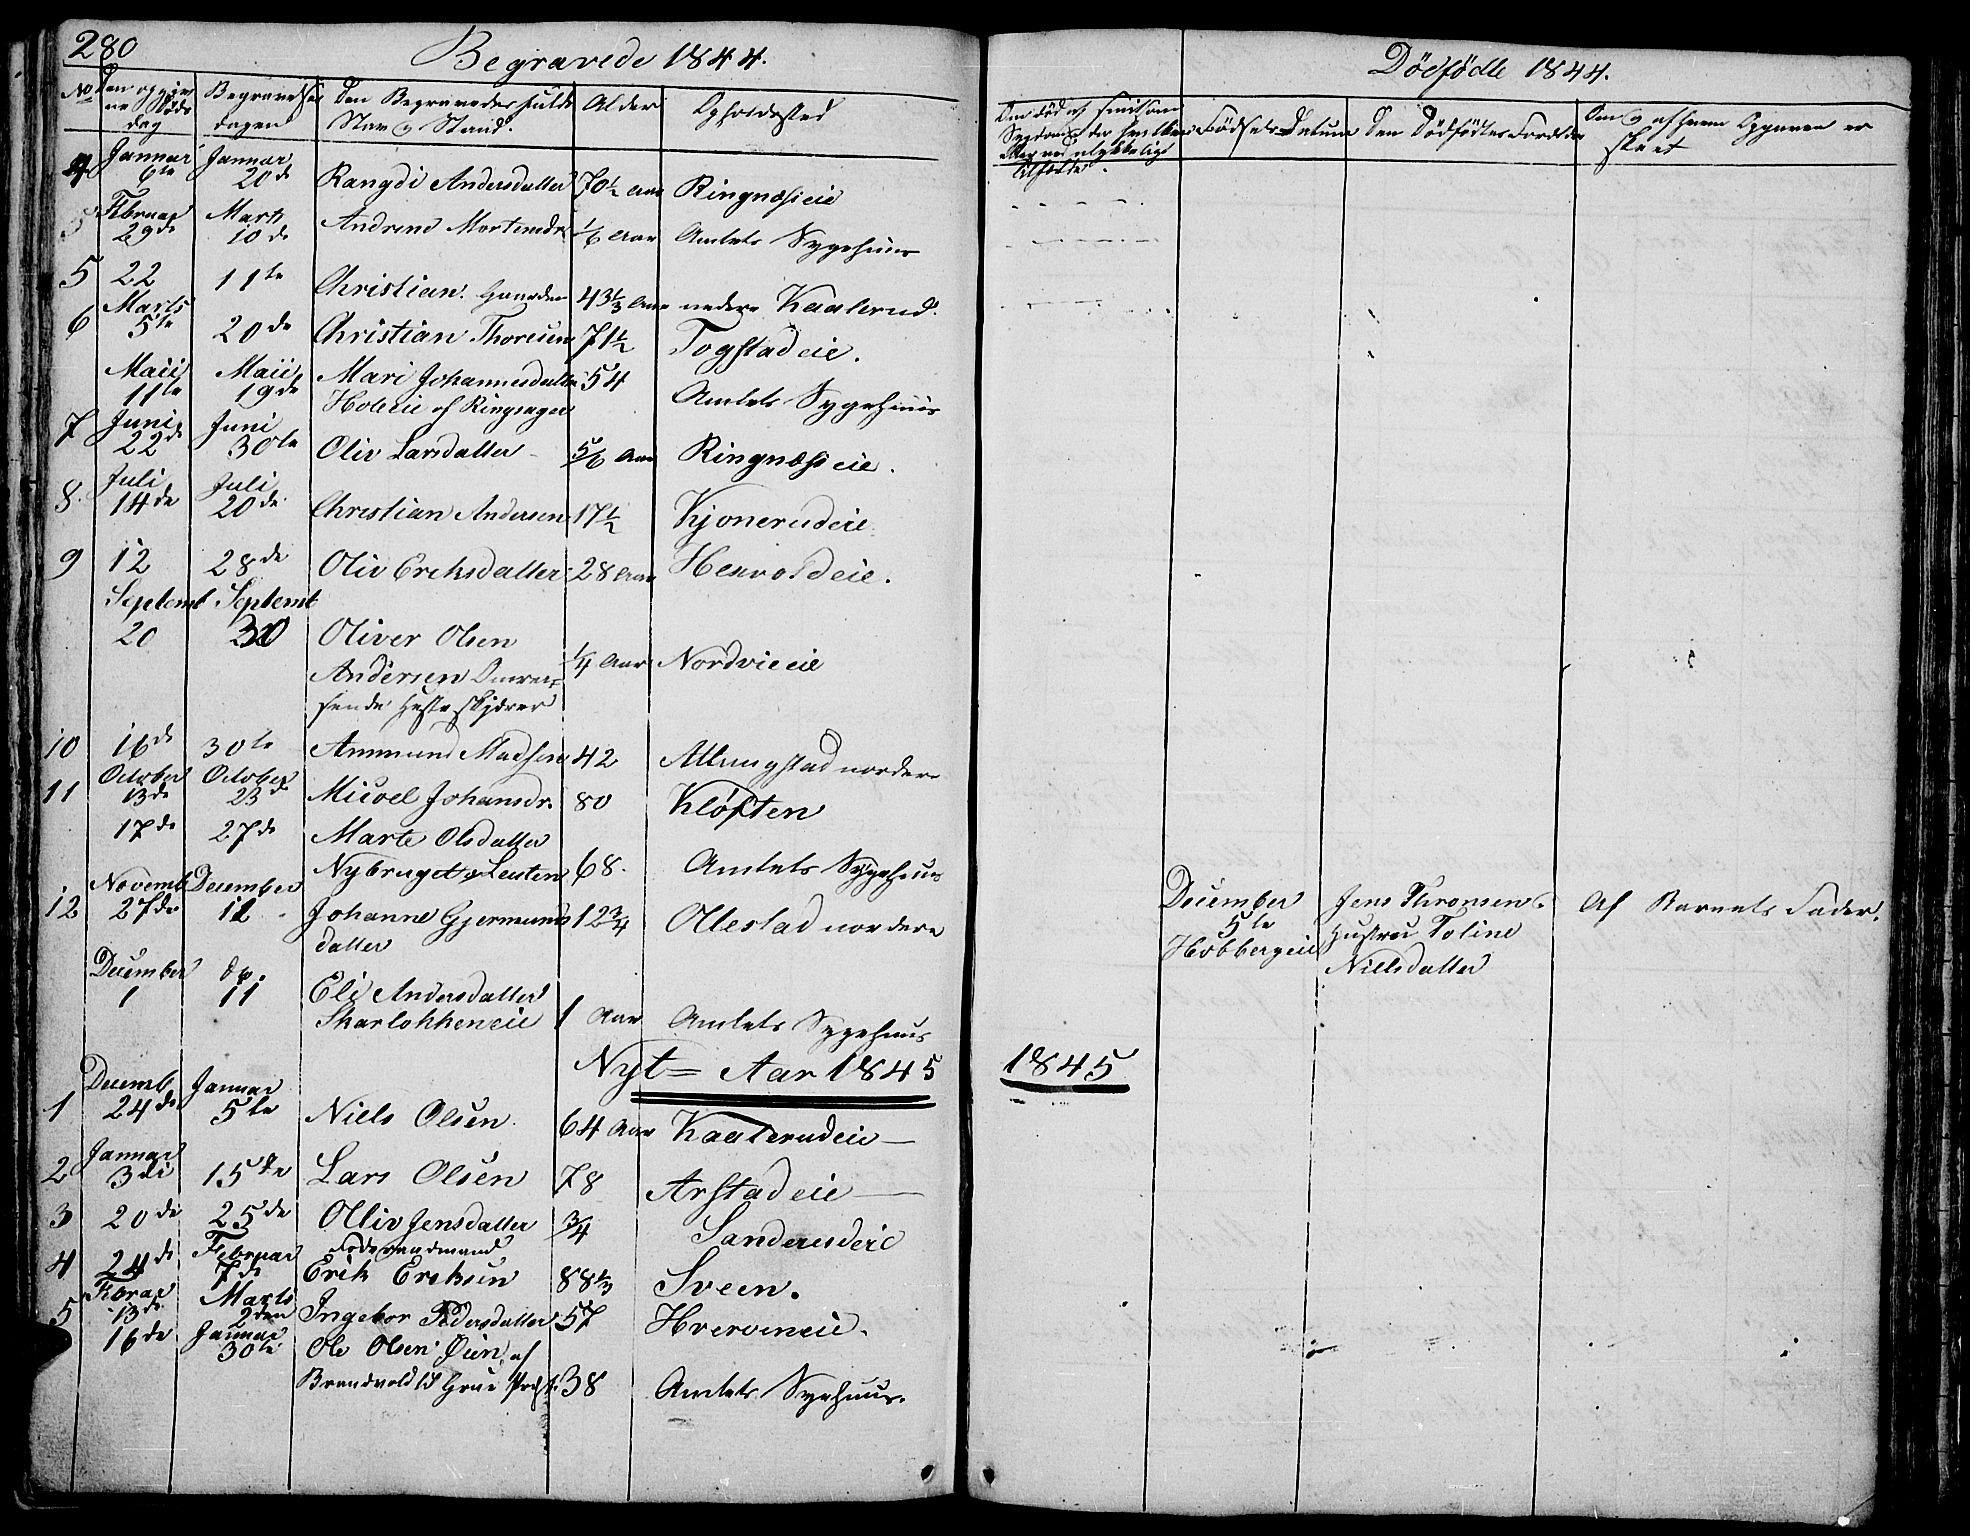 280
Begravede 1844.
No Den opgivne Døds dag | Begravelses dagen | Den Begravedes fulde Navn og Stand. | Alder | Opholdssted
4 Januar 6te | Januar 20de | Rangdi Andersdatter | 70½ Aar | Ringnæsieie
Februar 29de | Marts 10de | Andrine Mortensdr | 1/6 Aar | Amtets Sygehuus
5 22 | 11te | Christian Gaarder | 43⅓ Aar | nedre Kaalerud.
6 Marts 5te | 20de | Christian Thoresen | 71½ | Togstadeie.
Maii 11te | Maii 19de | Mari Johannesdatter | 54
Holeeie af Ringsager | Amtets Sygehuus
7 Juni 22de | Juni 30te | Oliv Larsdatter | 5/6 Aar | Ringnæsieie.
8. Juli 14de | Juli 20de | Christian Andersen | 17½ | Kjonerudeie
9 12 | 28de | Oliv Eriksdatter | 28 Aar | Henvoldeie.
Septemb | Septemb
20 | 30 | Oliver Olsen
Andersen Omrei-
sende Hesteskjærer | ¼ Aar | Nordvieeie
10 16de | 30te | Ammund Madsen | 42 | Allungstad nordre
11 October 13de | October 23de | Micoel Johansdr. | 80 | Kløften
17de | 27de | Marte Olsdatter
Nybruget Leuten | 68. | Amtets Sygehuus
12 Novemb 27de | December 12 | Johanne Gjermunds
datter | 12¾ | Ollestad nordre
December 1 | do. 11 | Eli Andersdatter
Skarlokkeneie | 1 Aar | Amtets Sygehuus
Nyt = Aar 1845
1 Decemb 24de | Januar 5te | Niels Olsen. | 64 Aar | Kaalerudeie
2 Januar 3die | 15de | Lars Olsen | 78 | Arstadeie
3 20de | 25de | Olliv Jensdatter | ¾ | Sanderudeie
Føderaadmand
4 24de | Februar 7de | Erik Eriksen | 88⅓ | Sveen.
5 Febrar 13de | Marts 2den | Ingebor Pedersdatter | 57 | Hverveneie.
16de | Januar 30te | Ole Olsen Øien, af
Brandvold i Grue Præst. | 38 | Amtets Sygehuus.
Dødfødte 1844.
Fødsels Datum | Den Dødfødtes Forældre | Om og af hvem Opgaven er skeet
December | Jens Thronsen & | Af Barnets Fader.
5te | Hustrue Toline
Hobbergeie | Nielsdatter
1845